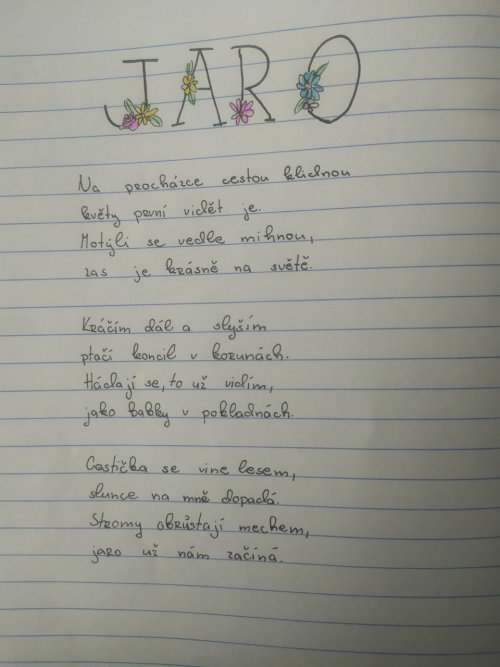 JARO
Na procházce cestou klidnou
květy první vidět je.
Motýli se vedle mihnou,
zas je krásně na světě.
Kráčím dál a slyším
ptačí koncil v korunách.
Hádají se, to už vidím,
jako babky v pokladnách.
Cestička se vine lesem,
slunce na mně dopadá.
Stromy obrůstají mechem,
jaro už nám začíná.